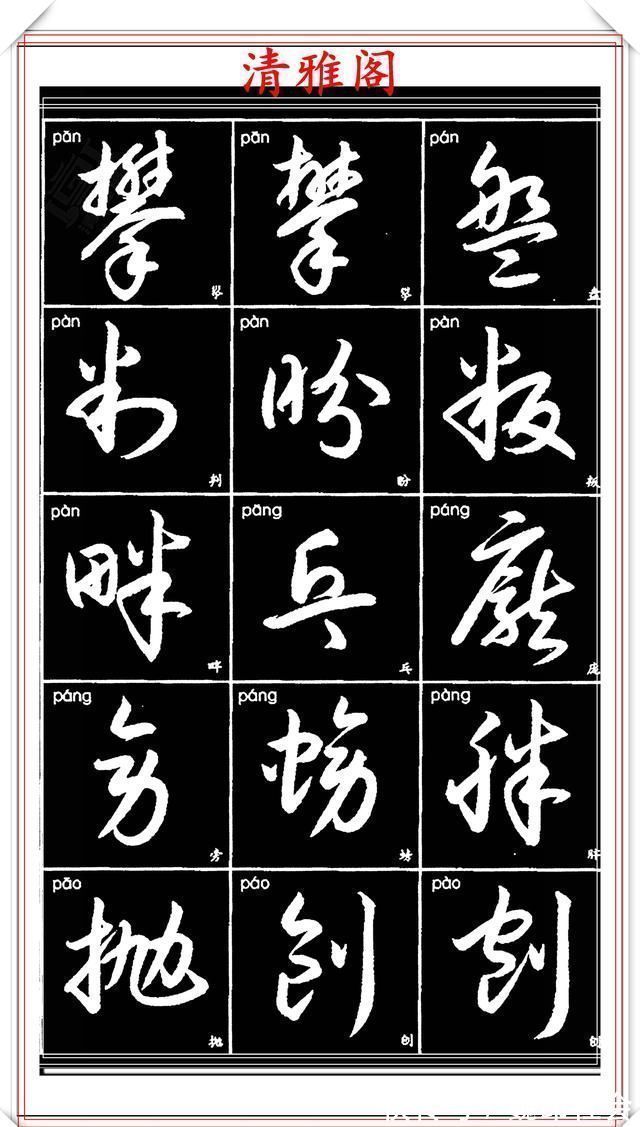 清雅阁
pān pān pán
攀 攀 盤
攀 攀 盘
pàn pàn pàn
判 盼 叛
判 盼 叛
pàn pāng páng
畔 乓 龐
畔 乓 庞
páng páng pàng
旁 螃 胖
旁 螃 胖
pāo páo pào
抛 刨
抛 刨 刨